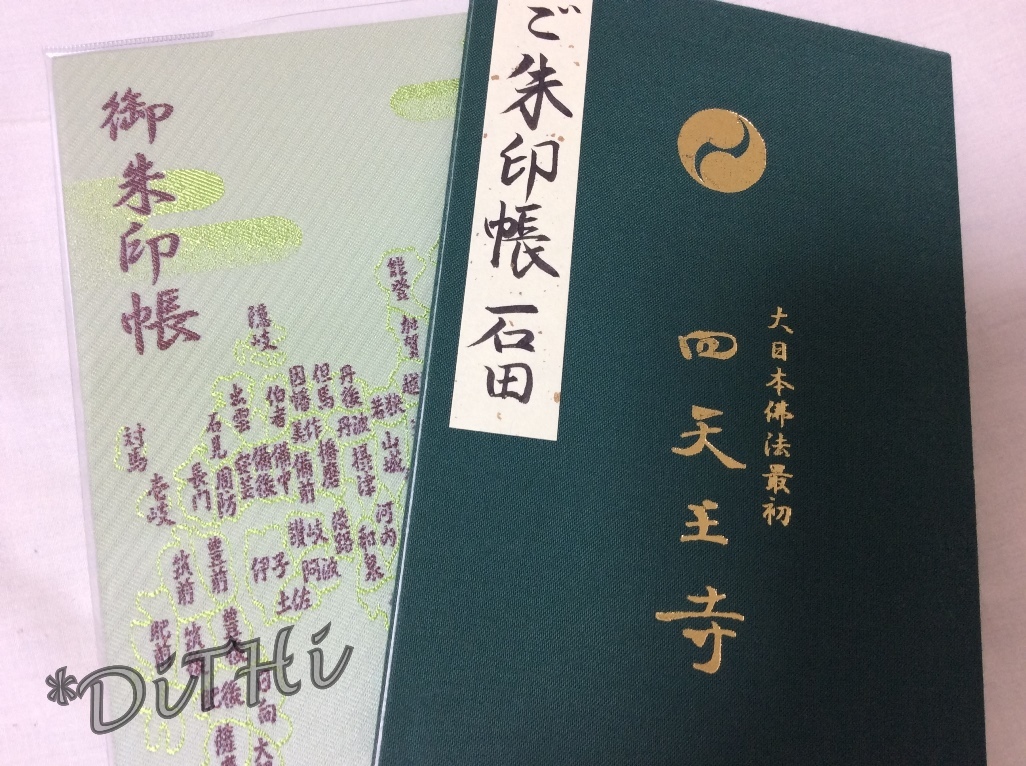 ご朱印帳 石田
大日本佛法最初
四天王寺
御朱印帳
能登
加賀
越
隠岐
丹後
但馬
因幡
伯耆
出雲
石見
若狭
丹波
美作
山城
摂津
播磨
備前
備中
備後
安芸
周防
長門
対馬
壱岐
河内
和泉
淡路
讃岐
阿波
伊予
土佐
豊前
筑前
豊後
筑後
肥前
肥後
日向
大
薩摩
*DiTHi